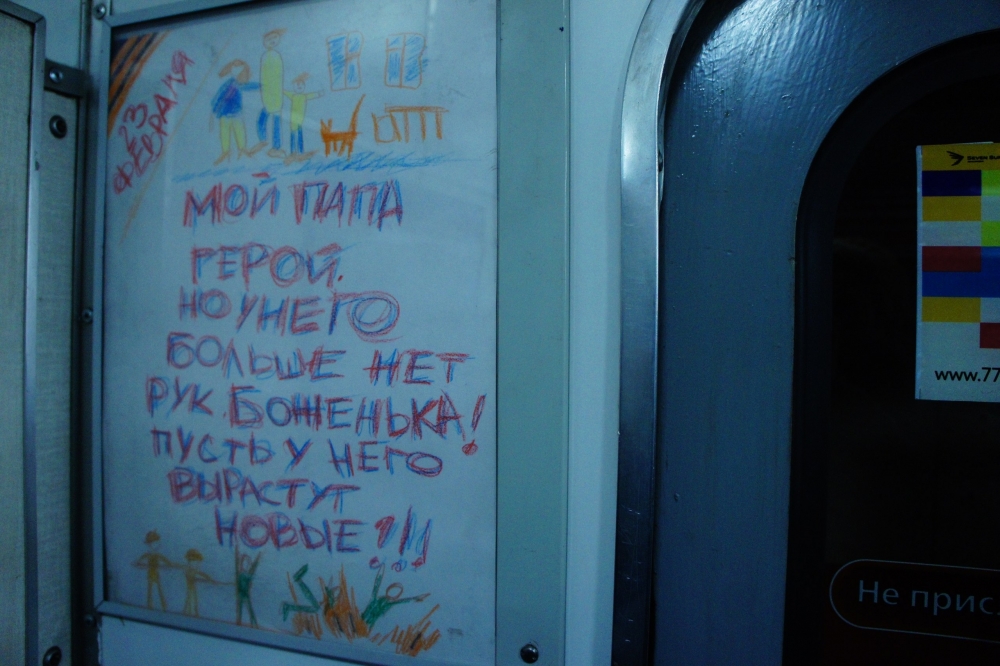 23
ФЕВРАЛЯ
МОЙ ПАПА
ГЕРОЙ.
НО У НЕГО
БОЛЬШЕ НЕТ
РУК. БОЖЕНЬКА!
ПУСТЬ У НЕГО
ВЫРАСТУТ
НОВЫЕ?!!
www.77
Не прис